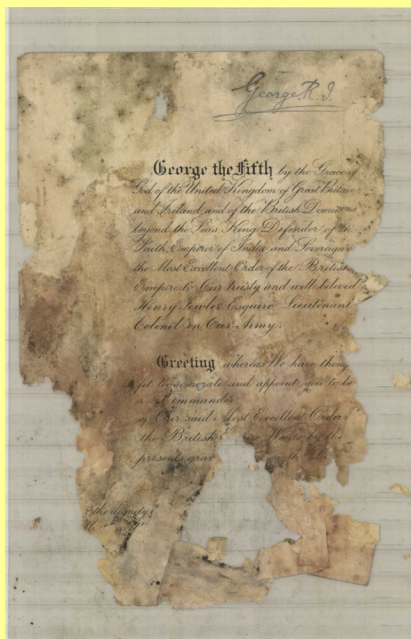 George R. I.
George the Fifth by the Grace of
God of the United Kingdom of Great Britain
and Ireland and of the British Dominions
beyond the Seas, King Defender of the
Faith, Emperor of India and Sovereign of
the Most Excellent Order of the British
Empire to Our trusty and well beloved
Henry Fowler Esquire Lieutenant
Colonel in Our Army.
Greeting whereas We have thought
fit to nominate and appoint you to be
a Commander
of Our said Most Excellent Order
the British
presents
the dignity